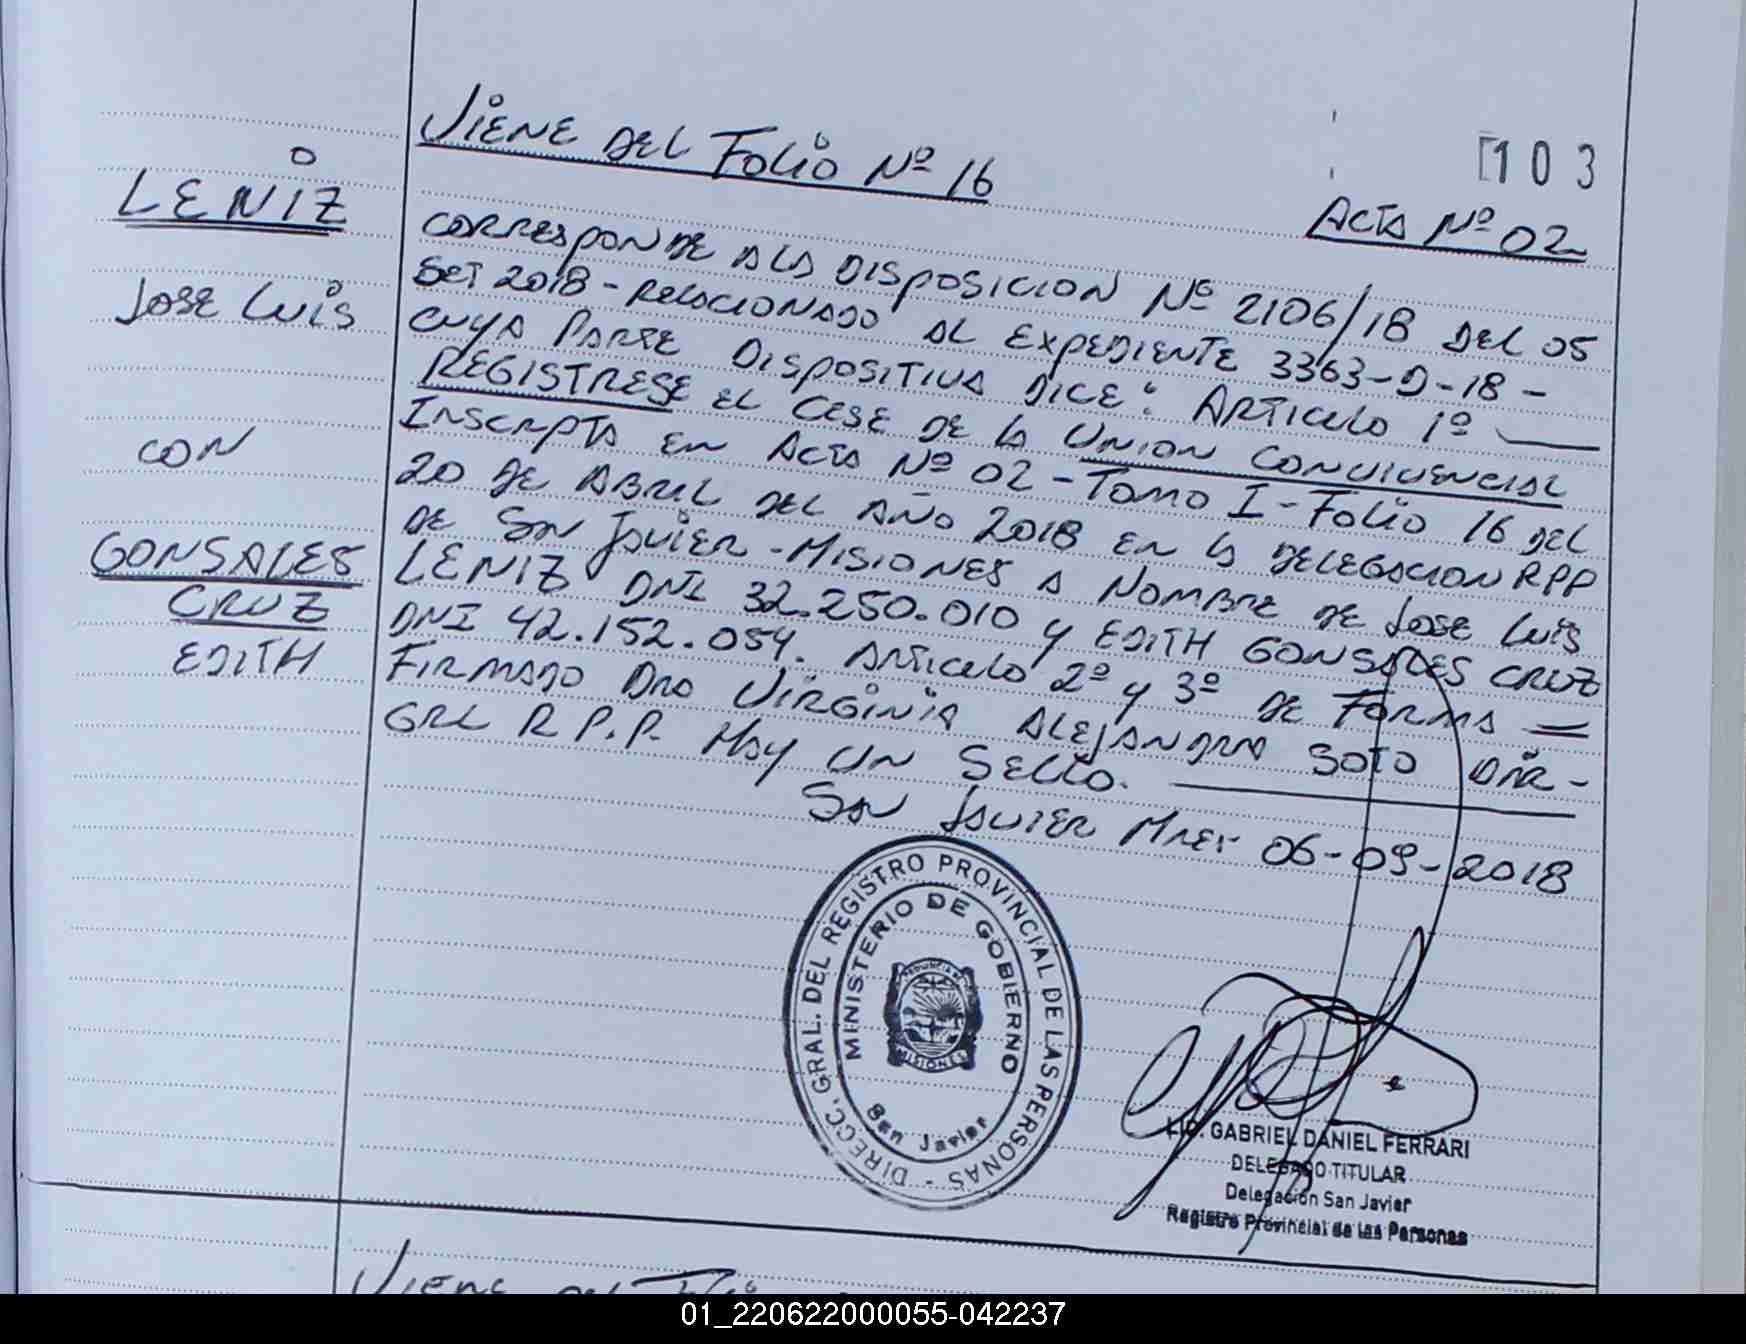 VIENE DEL FOLIO Nº 16
103
ACTA Nº 02
LENIZ
JOSE LUIS
CON
GONSALES
CRUZ
EDITH
CORRESPONDE A LA DISPOSICION Nº 2106/18 DEL 05
SET 2018 - RELACIONADO AL EXPEDIENTE 3363-D-18 -
CUYA PARTE DISPOSITIVA DICE: ARTICULO 1º
REGISTRESE EL CESE DE LA UNION CONVIVENCIAL
INSCRIPTA EN ACTA Nº 02 - TOMO I - FOLIO 16 DEL
20 DE ABRIL DEL AÑO 2018 EN LA DELEGACION RPP
DE SAN JAVIER - MISIONES A NOMBRE DE JOSE LUIS
LENIZ DNI 32.250.010 y EDITH GONSALES CRUZ
DNI 42.152.054. ARTICULO 2º y 3º DE FORMA =
FIRMADO DRA VIRGINIA ALEJANDRA SOTO DIR -
GRL R P.P. HAY UN SELLO.
SAN JAVIER Mnes 06-09-2018
DIRECC. GRAL. DEL REGISTRO PROVINCIAL DE LAS PERSONAS -
MINISTERIO DE GOBIERNO
PROVINCIA DE
MISIONES
San Javier
LIC. GABRIEL DANIEL FERRARI
DELEGADO TITULAR
Delegación San Javier
Registro Provincial de las Personas
VIENE DEL FOLIO
01_220622000055-042237